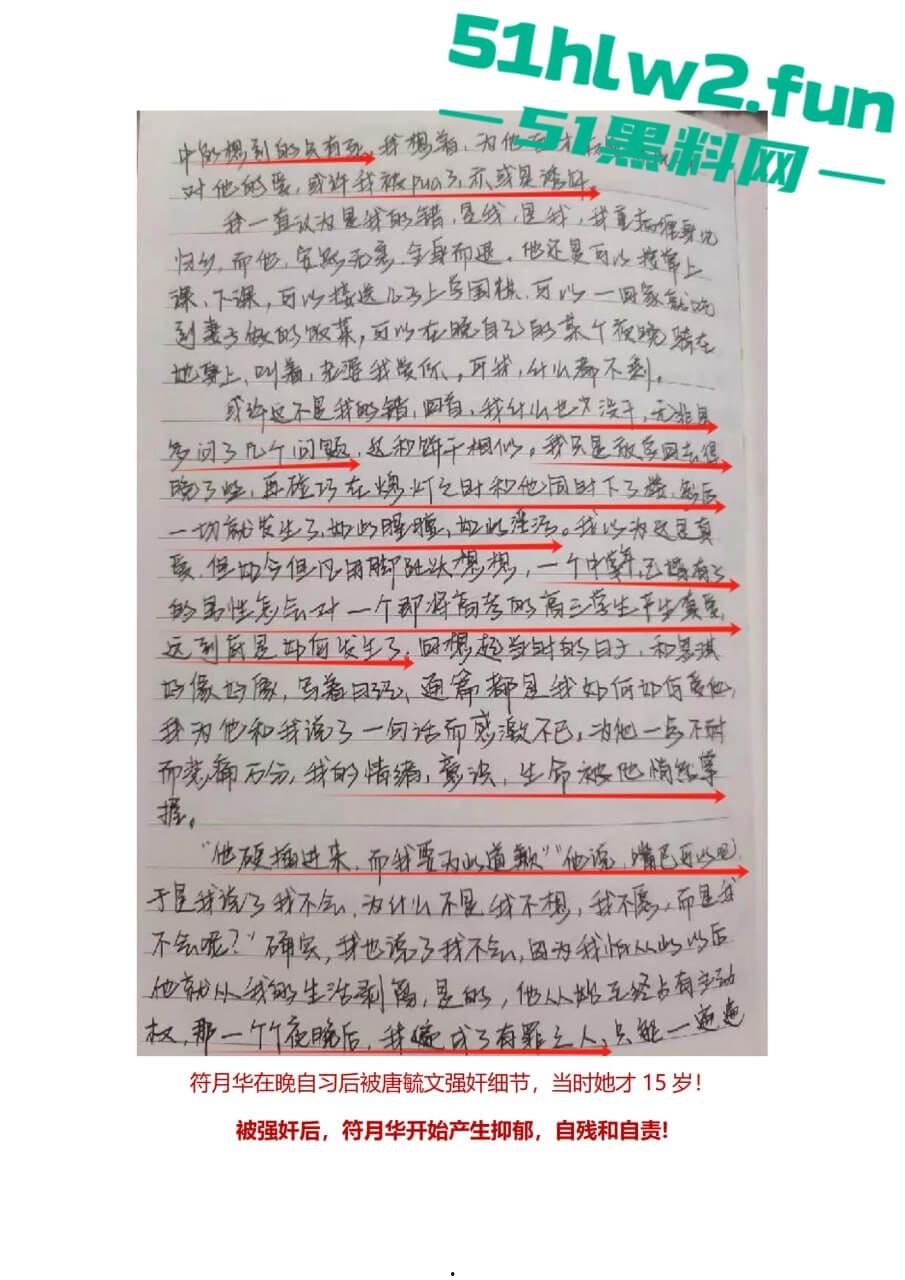 51hlw2.fun
51黑料网
中能想到的只有死。我想着，为他
对他的爱，或许我被pua了，亦或是诱奸。
我一直认为是我的错，是我，是我，我
归乡，而他，安然无恙，全身而退。他还是可以 上
课，下课，可以接送儿子上学围棋，可以一回家就吃
到妻子做的饭菜，可以在晚自习的某个夜晚骑在
她身上，叫着，老婆我爱你，可我，什么都不剩。
或许这不是我的错，回首，我什么也没干，无非是
多问了几个问题，这和饼干相似。我只是放学回去得
晚了些，再碰巧在熄灯之时和他同时下了楼，然后
一切就发生了，如此腥膻，如此淫活。我以为这是真
爱，但如今但凡用脚趾头想想，一个中年，已婚有子
的男性怎会对一个即将高考的高三学生产生真爱，
这到底是如何发生了，回想起当时的日子，和思琪
好像好像，写着日记，通篇都是我如何如何爱他，
我为他和我说了一句话而感激不已，为他一点不耐
而悲痛万分，我的情绪，意识，生命被他悄然掌
握。
“他硬插进来，而我要为此道歉”“他说，嘴巴可以吧，
于是我说了我不会，为什么不是我不想，我不愿，而是我
不会呢？”确实，我也说了我不会，因为我怕从此以后
他就从我的生活剥离，是的，他从始至终占有主动
权，那一个个夜晚后，我 成了有罪之人，只能一遍遍
符月华在晚自习后被唐毓文强奸细节，当时她才 15 岁！
被强奸后，符月华开始产生抑郁，自残和自责!